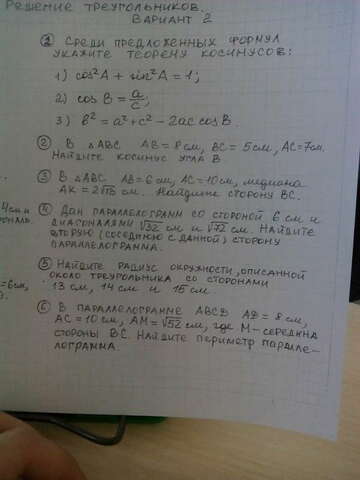 Решение треугольников.
Вариант 2
① Среди предложенных формул
укажите теорему косинусов:
1) cos²A + sin²A = 1;
2) cos B = a/c;
3) b² = a² + c² - 2ac cos B
② В △ABC AB = 8 см, BC = 5 см, AC = 7 см.
Найдите косинус угла B
③ В △ABC AB = 6 см, AC = 10 см, медиана
AK = 2√13 см. Найдите сторону BC.
④ Дан параллелограмм со стороной 6 см и
диагоналями √32 см и √72 см. Найдите
вторую (соседнюю с данной) сторону
параллелограмма.
⑤ Найдите радиус окружности, описанной
около треугольника со сторонами
13 см, 14 см и 15 см
⑥ В параллелограмме ABCD AD = 8 см,
AC = 10 см, AM = √52 см, где M - середина
стороны BC. Найдите периметр паралле-
лограмма.